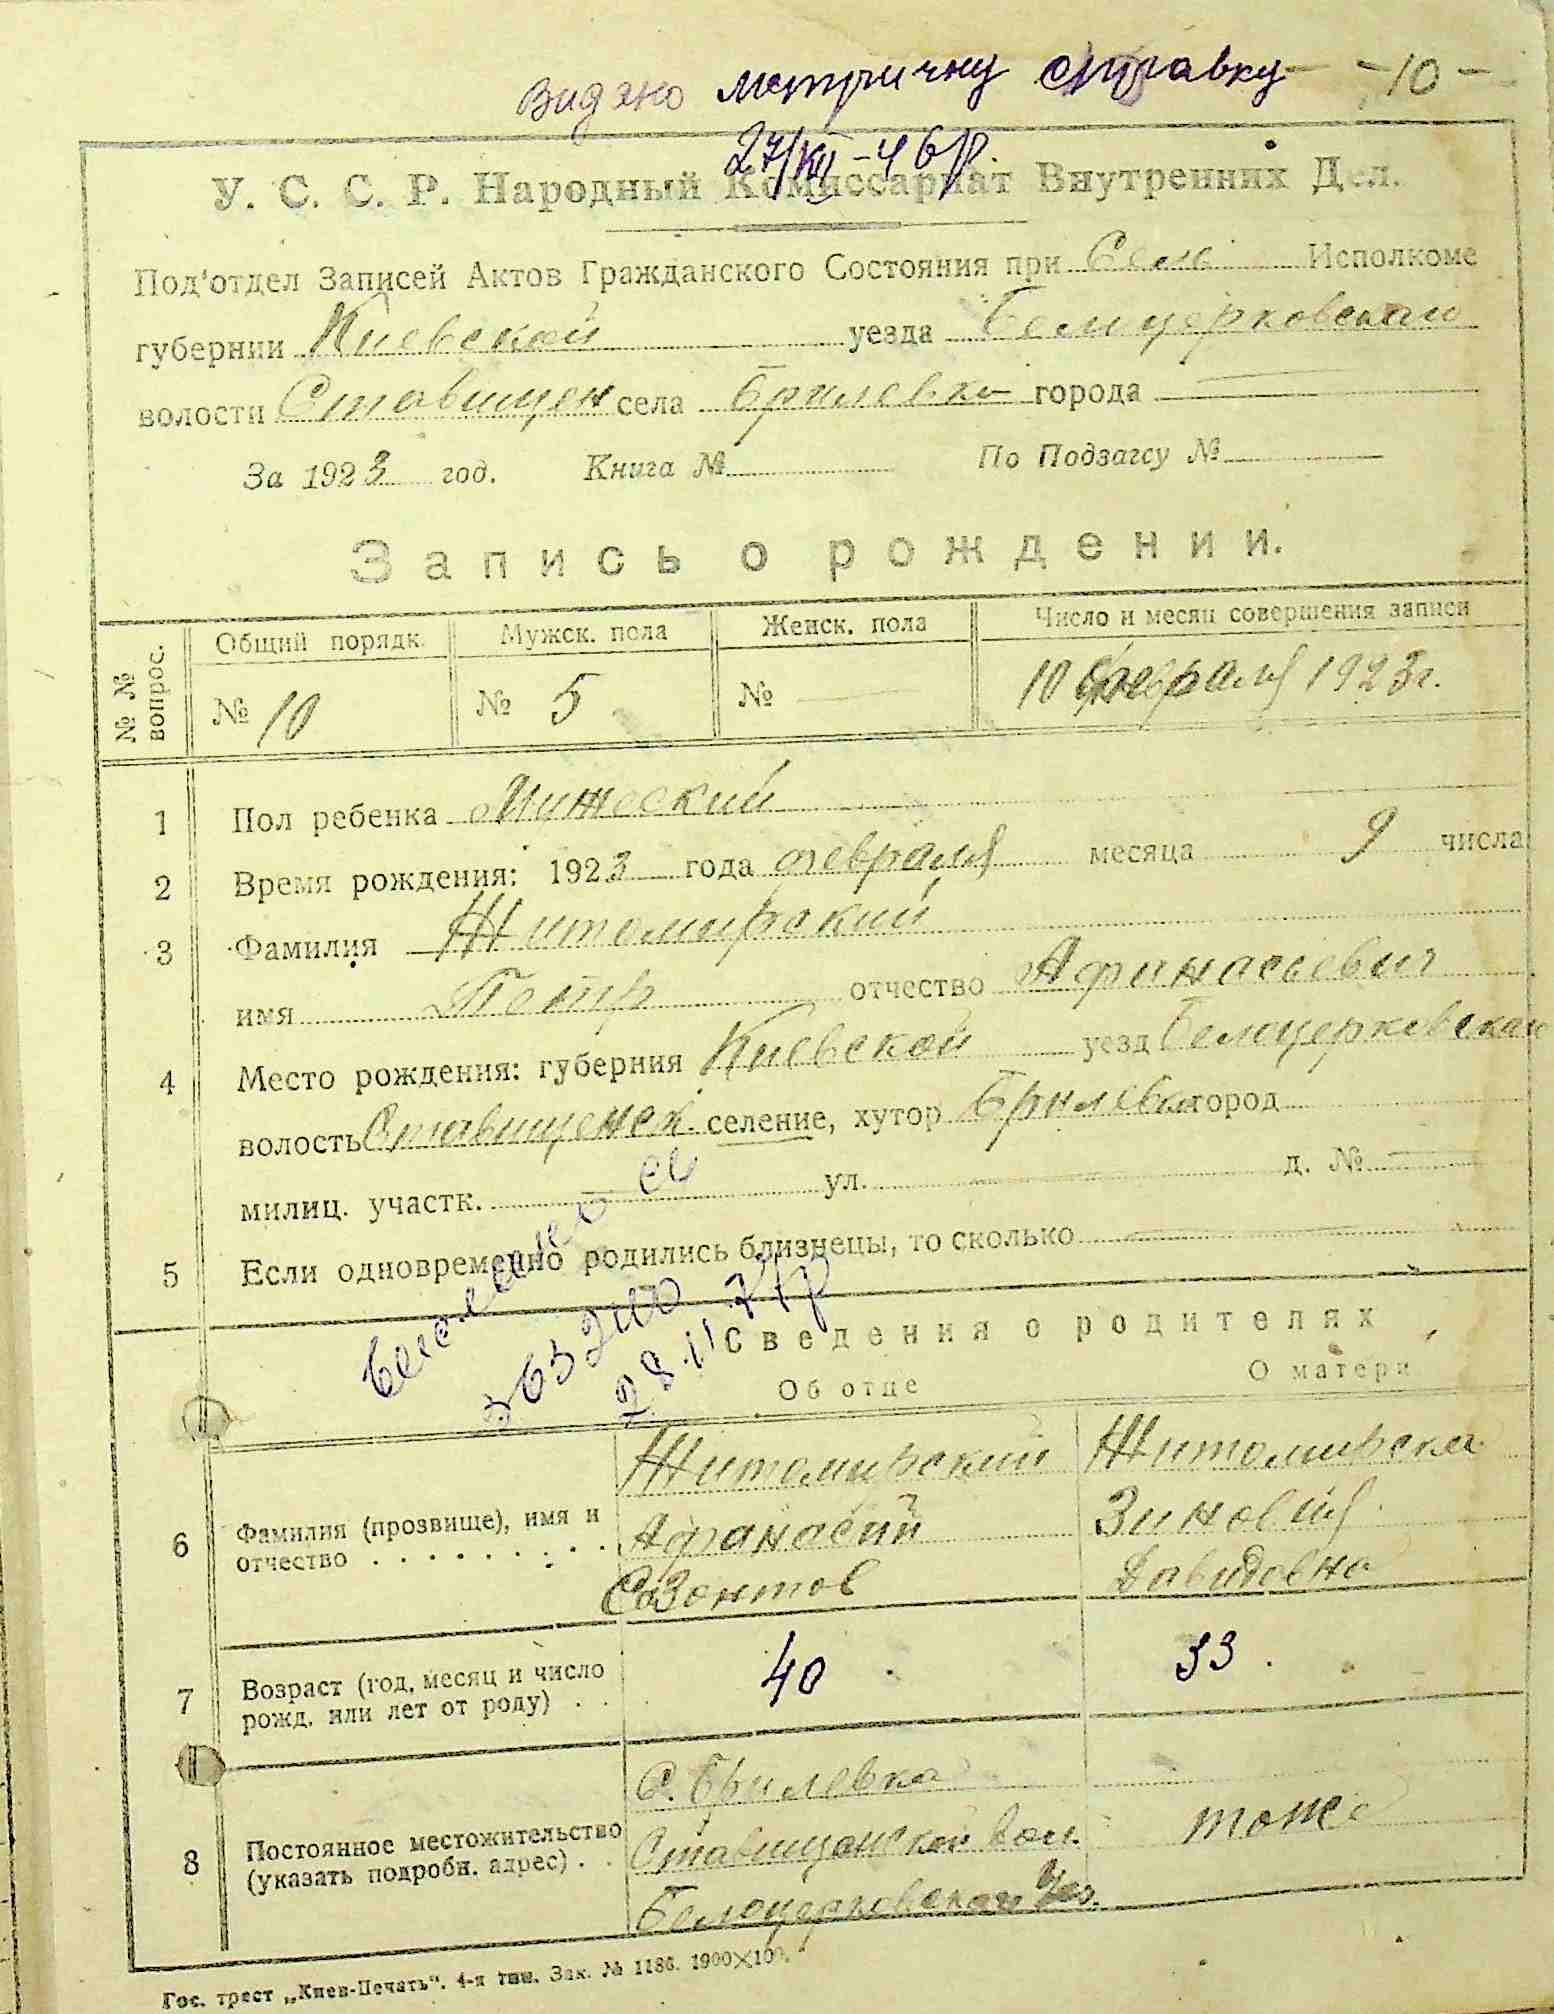 Видано метричну справку - 10 -
27/XII - 46 р.
У. С. С. Р. Народный Комиссариат Внутренних Дел.
Под'отдел Записей Актов Гражданского Состояния при Сель Исполкоме
губернии Киевской уезда Белоцерковский
волости Ставищен села Брилевка города
За 1923 год. Книга № По Подзагсу №
Запись о рождении.
№ № вопрос. Общий порядк. Мужск. пола Женск. пола Число и месяц совершения записи
№ 10 № 5 № 10 февраля 1923 г.
1 Пол ребенка Мужеский
2 Время рождения: 1923 года февраля месяца 9 числа
3 Фамилия Житомирский
имя Петр отчество Афанасьевич
4 Место рождения: губерния Киевской уезд Белоцерковский
волость Ставищенск. селение, хутор Брилевка город
милиц. участк. ул. д. №
5 Если одновременно родились близнецы, то сколько
28.11 71р
Сведения о родителях
Об отце О матери
6 Фамилия (прозвище), имя и отчество . . . . . . . . .
Житомирский Житомирская
Афанасий Зиновия
Созонтов Давидовна
7 Возраст (год, месяц и число рожд. или лет от роду) . . 40 33.
8 Постоянное местожительство (указать подробн. адрес) . .
с. Брилевка
Ставищанской вол. тоже
Белоцерковской Уез.
Гос. трест „Киев-Печать". 4-я тип. Зак. № 1186. 1900×100.